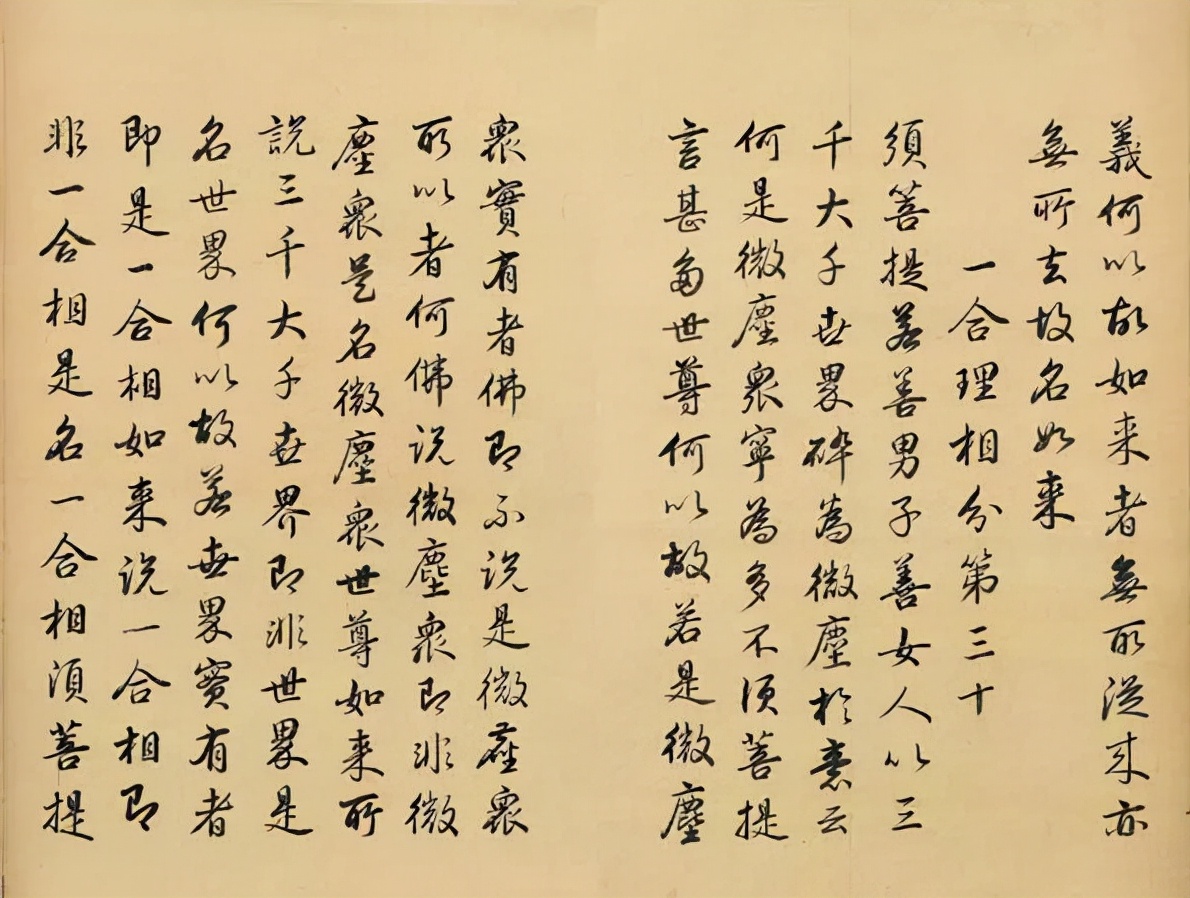 義何以故如来者無所從来亦
無所去故名如来
一合理相分第三十
須菩提若善男子善女人以三
千大千世界碎為微塵於意云
何是微塵衆寧為多不須菩提
言甚多世尊何以故若是微塵
衆實有者佛即不説是微塵衆
所以者何佛説微塵衆即非微
塵衆是名微塵衆世尊如来所
説三千大千世界即非世界是
名世界何以故若世界實有者
即是一合相如来説一合相即
非一合相是名一合相須菩提